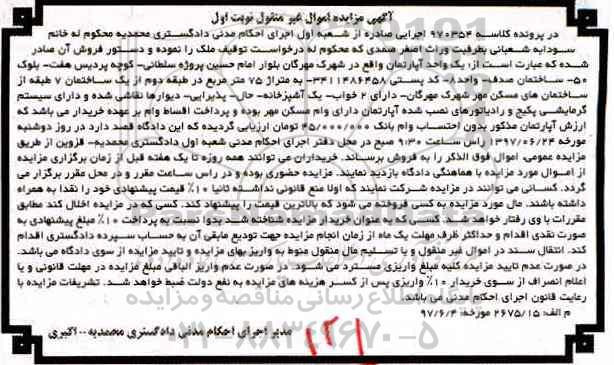 آگهی مزایده اموال غیر منقول نوبت اول
در پرونده کلاسه ۹۷۰۳۵۴ اجرایی صادره از شعبه اول اجرای احکام مدنی دادگستری محمدیه محکوم له خانم
سودابه شعبانی بطرفیت وراث اصغر صمدی که محکوم له درخواست توقیف ملک را نموده و دستور فروش آن صادر
شده که عبارت است از: یک واحد آپارتمان واقع در شهرک مهرگان بلوار امام حسین پروژه سلطانی- کوچه پردیس هفت- بلوک
۵۰- ساختمان صدف- واحد۸- کد پستی ۳۴۱۱۴۸۶۴۵۸- به متراژ ۷۵ متر مربع در طبقه دوم از یک ساختمان ۷ طبقه از
ساختمان های مسکن مهر شهرک مهرگان- دارای ۲ خواب- یک آشپزخانه- حال- پذیرایی- دیوارها نقاشی شده و دارای سیستم
گرمایشی پکیج و رادیاتورهای نصب شده آپارتمان دارای وام مسکن مهر بوده و پرداخت اقساط وام بر عهده خریدار می باشد که
ارزش آپارتمان مذکور بدون احتساب وام بانک ۴۵/۰۰۰/۰۰۰ تومان ارزیابی گردیده که این دادگاه قصد دارد در روز دوشنبه
مورخه ۱۳۹۷/۰۶/۲۴ راس ساعت ۹:۳۰ صبح در محل دفتر اجرای احکام مدنی شعبه اول دادگستری محمدیه- قزوین از طریق
مزایده عمومی، اموال فوق الذکر را به فروش برساند. خریداران می توانند همه روزه تا یک هفته قبل از زمان برگزاری مزایده
از اموال مورد مزایده با هماهنگی دادگاه بازدید نمایند. مزایده حضوری بوده و در راس ساعت مقرر و در محل مقرر برگزار می
گردد. کسانی می توانند در مزایده شرکت نمایند که اولا منع قانونی نداشته ثانیا ۱۰٪ قیمت پیشنهادی خود را نقدا به همراه
داشته باشند. مال مورد مزایده به کسی فروخته می شود که بالاترین قیمت را پیشنهاد کند. کسی که در مزایده اخلال کند مطابق
مقررات با وی رفتار خواهد شد. کسی که به عنوان خریدار مزایده شناخته شد بدوا نسبت به پرداخت ۱۰٪ مبلغ پیشنهادی به
صورت نقدی اقدام و حداکثر ظرف مهلت یک ماه از زمان انجام مزایده جهت تودیع مابقی آن به حساب سپرده دادگستری اقدام
کند. انتقال سند در اموال غیر منقول و یا تسلیم مال منقول منوط به واریز بهای مزایده و تایید مزایده از سوی دادگاه می باشد.
در صورت عدم تایید مزایده کلیه مبلغ واریزی مسترد می شود. در صورت عدم واریز الباقی مبلغ مزایده در مهلت قانونی و یا
اعلام انصراف از سوی خریدار ۱۰٪ واریزی پس از کسر هزینه های مزایده به نفع دولت ضبط خواهد شد. تشریفات مزایده با
رعایت قانون اجرای احکام مدنی می باشد.
م الف: ۲۶۷۵/۱۵ مورخه: ۹۷/۶/۴
مدیر اجرای احکام مدنی دادگستری محمدیه- اکبری
۰۲۱-۸۸۳۴۹۶۷۰-۵